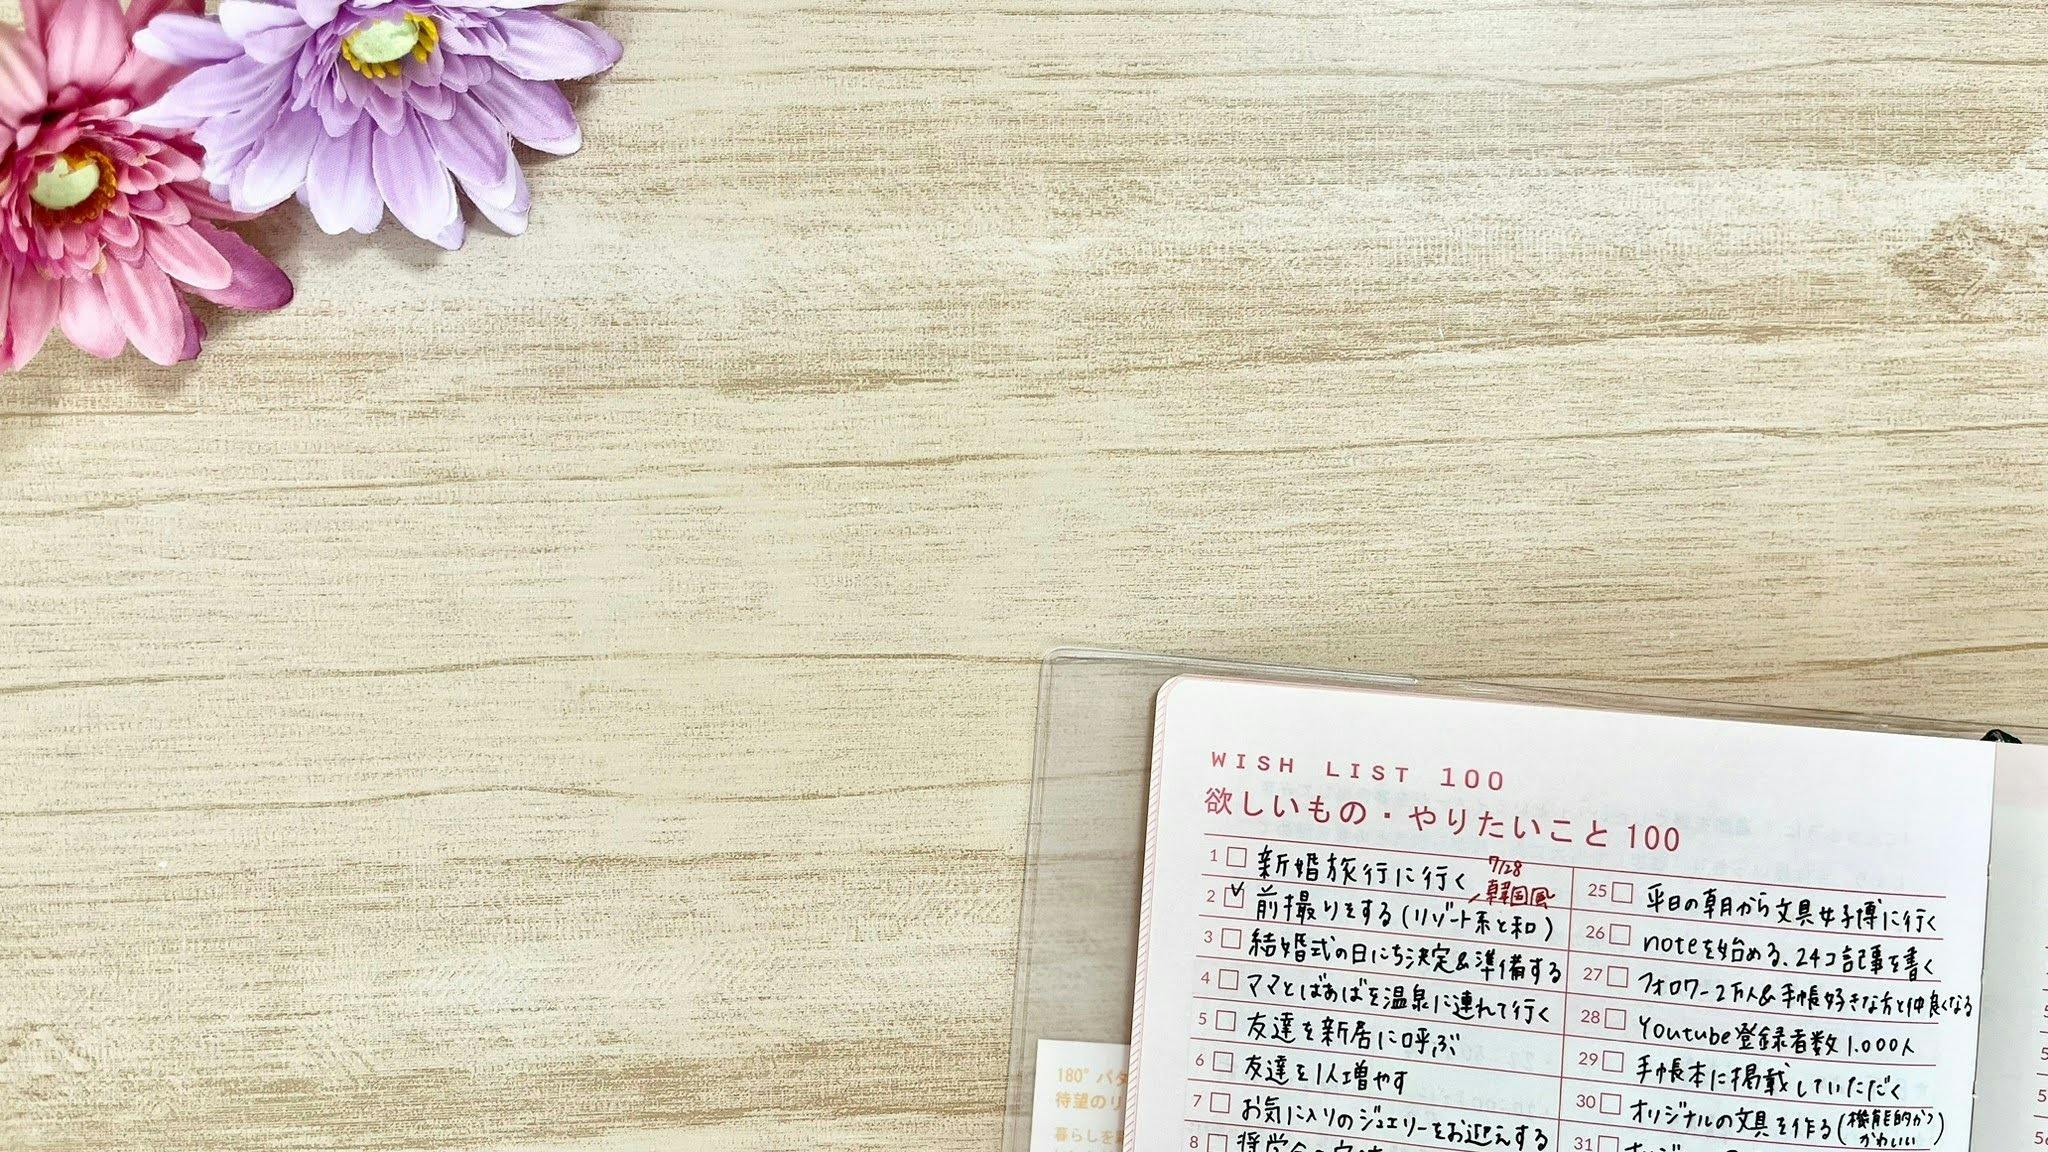 WISH LIST 100
欲しいもの・やりたいこと100
1 新婚旅行に行く
7/28
韓国風
2 前撮りをする(リゾート系と和)
3 結婚式の日にち決定&準備する
4 ママとばあばを温泉に連れて行く
5 友達を新居に呼ぶ
6 友達を1人増やす
7 お気に入りのジュエリーをお迎えする
8
25 平日の朝から文具女子博に行く
26 noteを始める、24コ記事を書く
27 フォロワー2万人&手帳好きな方と仲良くなる
28 Youtube登録者数1.000人
29 手帳本に掲載していただく
30 オリジナルの文具を作る(機能的かつかわいい)
31
180°パタ
待望のリ
暮らしを